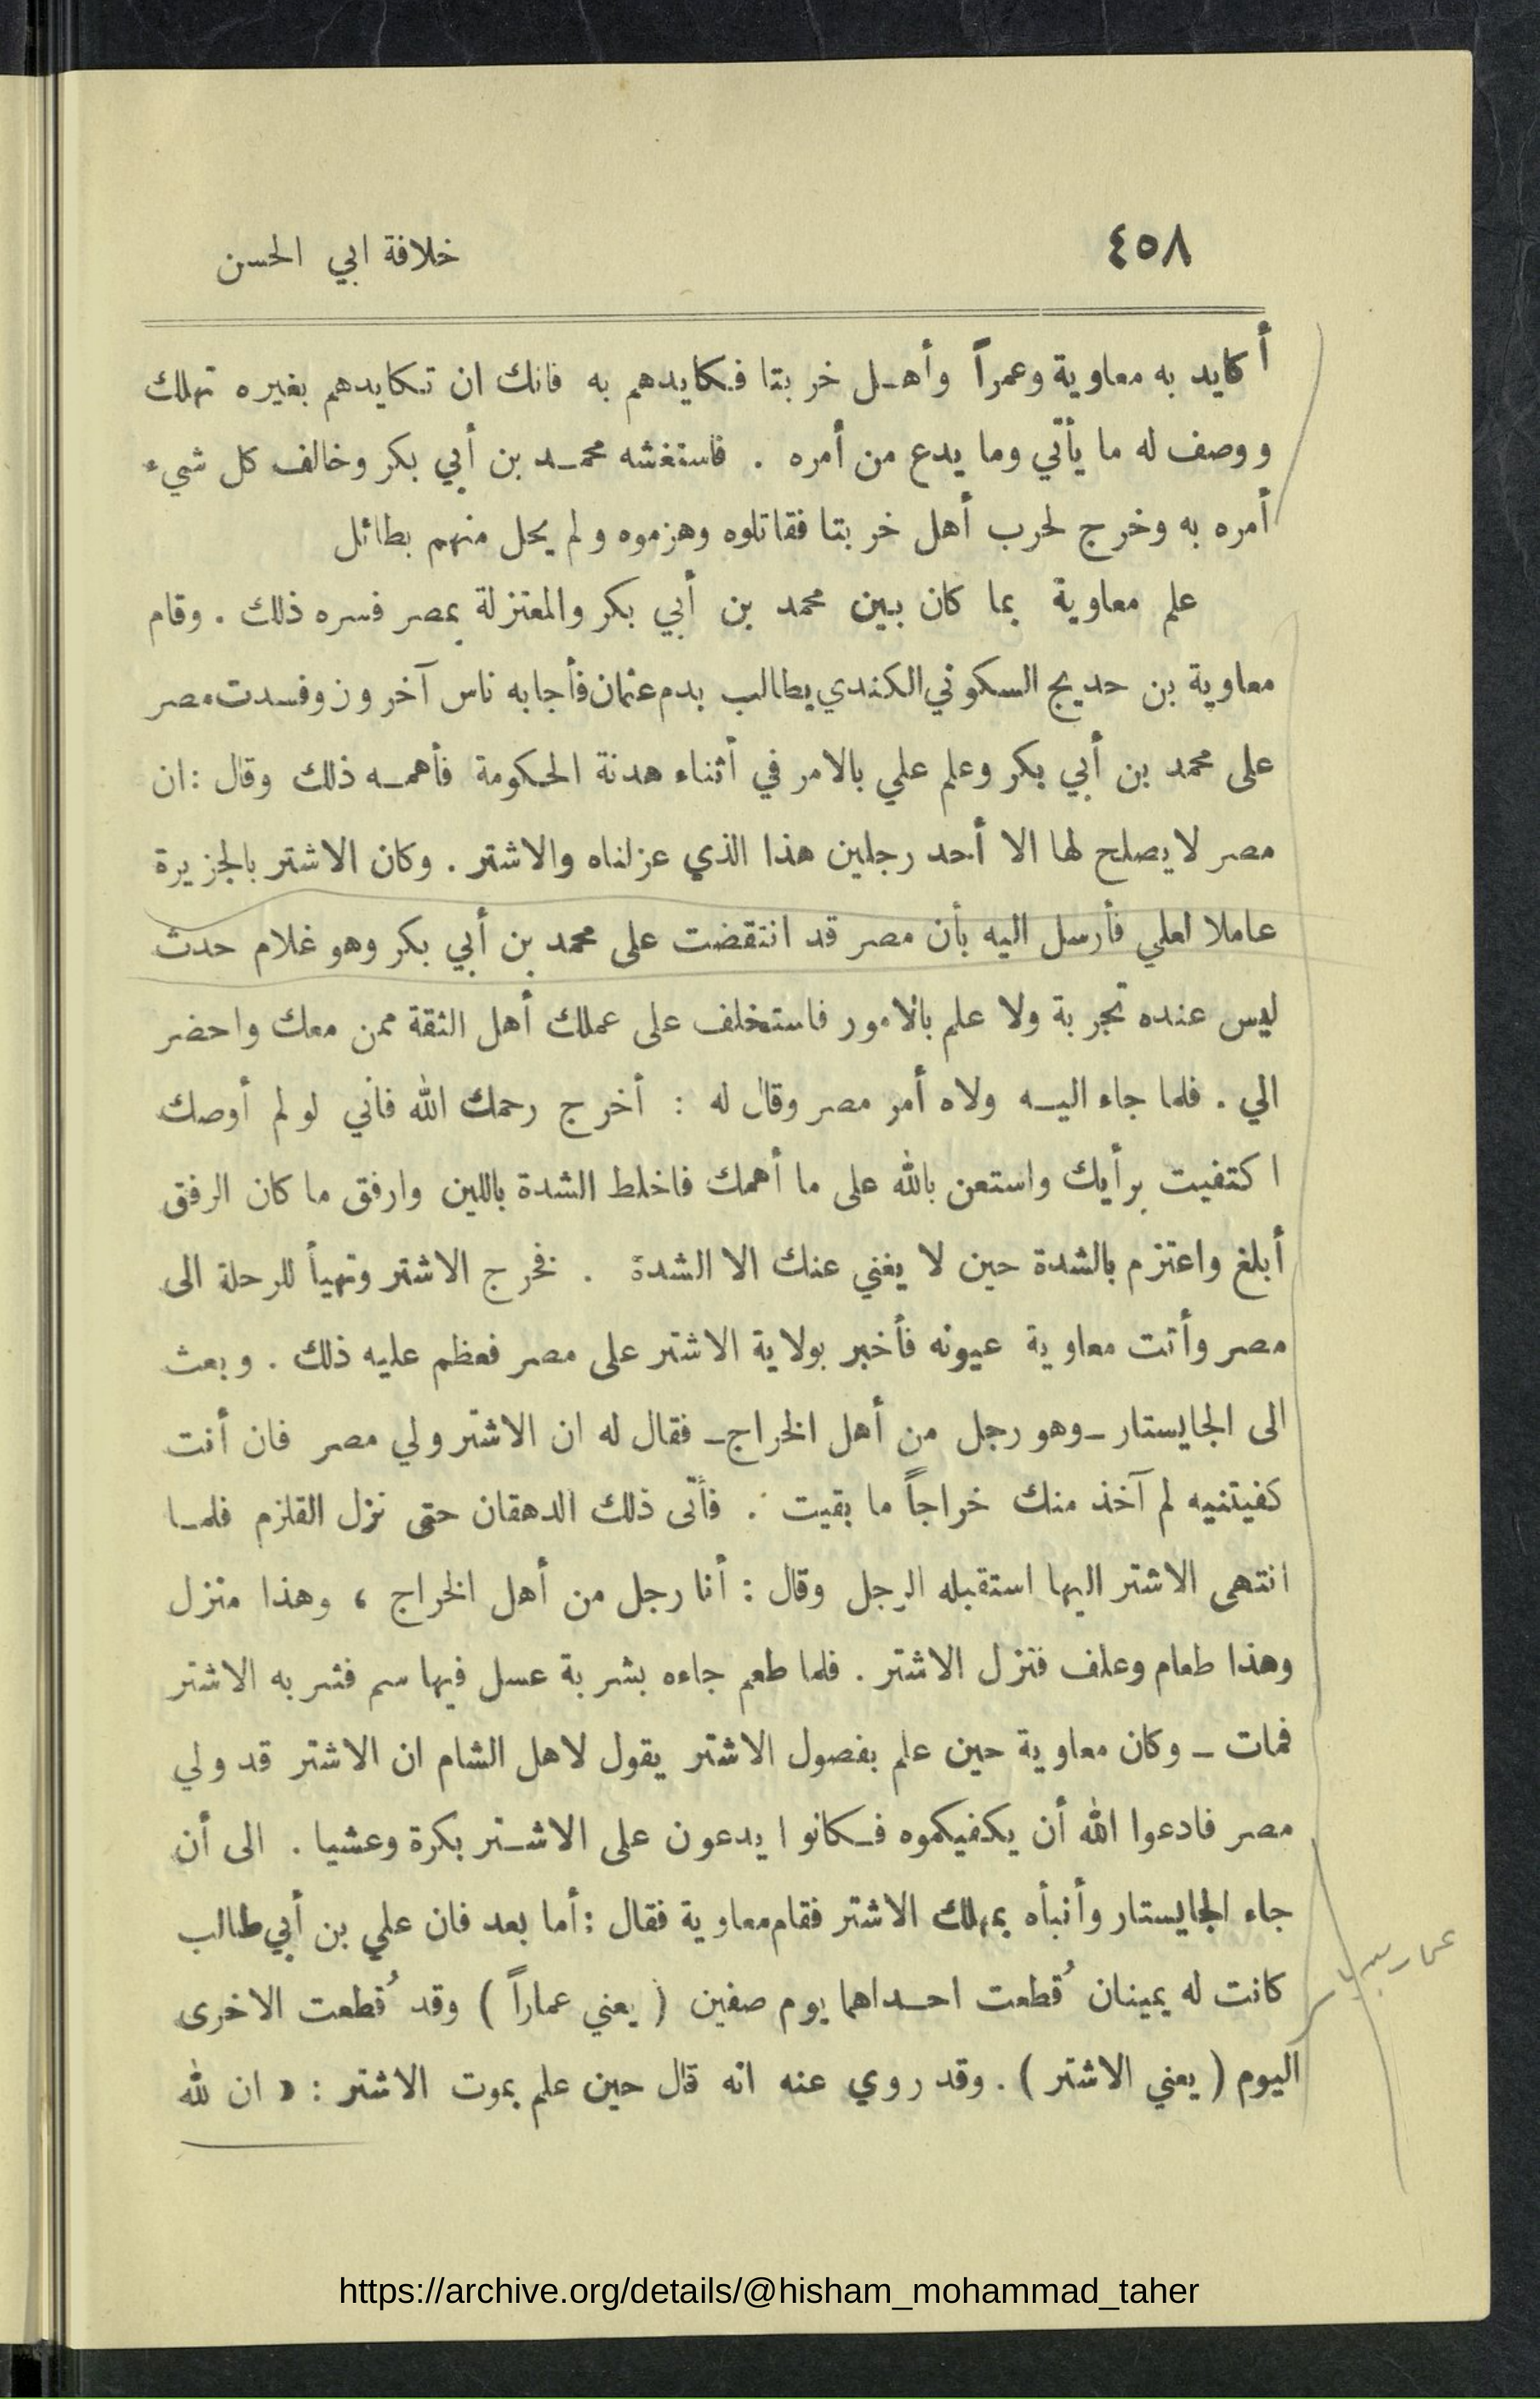 ٤٥٨
خلافة ابي الحسن
أكايد به معاوية وعمراً وأهل خربتا فكايدهم به فانك ان تكايدهم بغيره تهلك
ووصف له ما يأتي وما يدع من أمره . فاستغشه محمد بن أبي بكر وخالف كل شيء
أمره به وخرج لحرب أهل خربتا فقاتلوه وهزموه ولم يحل منهم بطائل
علم معاوية بما كان بين محمد بن أبي بكر والمعتزلة بمصر فسره ذلك . وقام
معاوية بن حديج السكوني الكندي يطالب بدم عثمان فأجابه ناس آخرون وفسدت مصر
على محمد بن أبي بكر وعلم علي بالامر في أثناء هدنة الحكومة فأهمه ذلك وقال : ان
مصر لا يصلح لها الا أحد رجلين هذا الذي عزلناه والاشتر . وكان الاشتر بالجزيرة
عاملا لعلي فأرسل اليه بأن مصر قد انتقضت على محمد بن أبي بكر وهو غلام حدث
ليس عنده تجربة ولا علم بالامور فاستخلف على عملك أهل الثقة ممن معك واحضر
الي . فلما جاء اليه ولاه أمر مصر وقال له : أخرج رحمك الله فأني لو لم أوصك
اكتفيت برأيك واستعن بالله على ما أهمك فاخلط الشدة باللين وارفق ما كان الرفق
أبلغ واعتزم بالشدة حين لا يغني عنك الا الشدة . فخرج الاشتر وتهيأ للرحلة الى
مصر وأتت معاوية عيونه فأخبر بولاية الاشتر على مصر فعظم عليه ذلك . وبعث
الى الجايستار ـ وهو رجل من أهل الخراج ـ فقال له ان الاشتر ولي مصر فان أنت
كفيتنيه لم آخذ منك خراجاً ما بقيت . فأتى ذلك الدهقان حتى نزل القلزم فلما
انتهى الاشتر اليها استقبله الرجل وقال : أنا رجل من أهل الخراج ، وهذا منزل
وهذا طعام وعلف فنزل الاشتر . فلما طعم جاءه بشربة عسل فيها سم فشربه الاشتر
فمات ـ وكان معاوية حين علم بفصول الاشتر يقول لاهل الشام ان الاشتر قد ولي
مصر فادعوا الله أن يكفيكموه فكانوا يدعون على الاشتر بكرة وعشيا . الى أن
جاء الجايستار وأنبأه بمهلك الاشتر فقام معاوية فقال : أما بعد فان علي بن أبي طالب
كانت له يمينان قُطعت احداهما يوم صفين ( يعني عماراً ) وقد قُطعت الاخرى
اليوم ( يعني الاشتر ) . وقد روي عنه انه قال حين علم بموت الاشتر : « ان لله
https://archive.org/details/@hisham_mohammad_taher